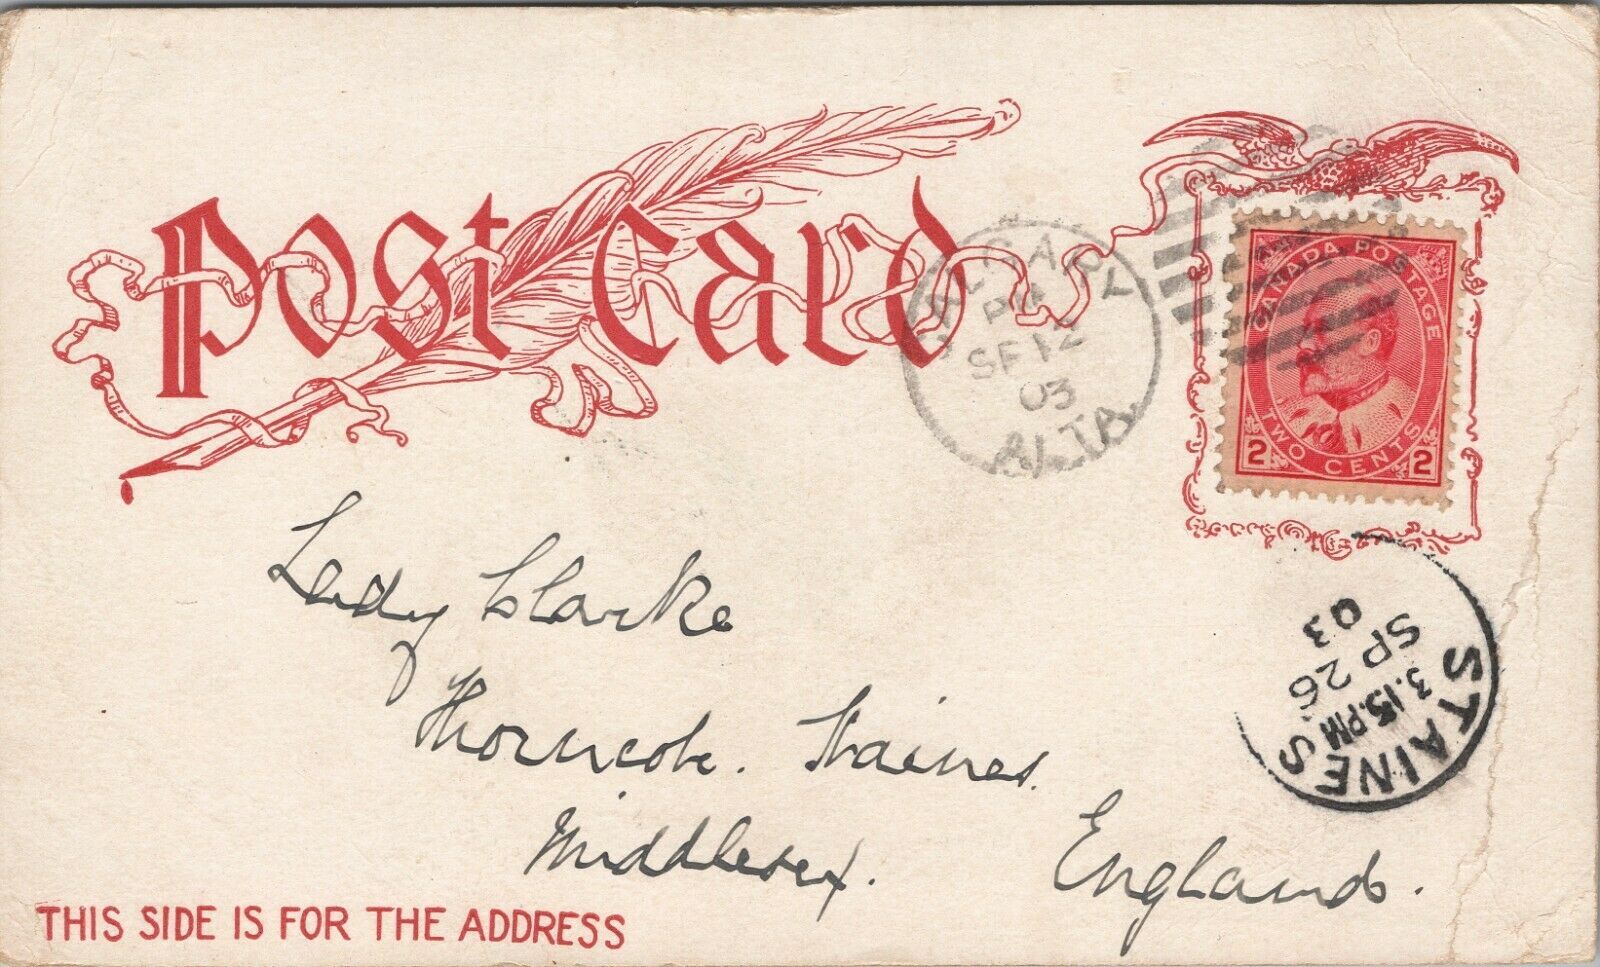 Post Card
CALGARY
PM
SE 12
03
ALTA
CANADA POSTAGE
2 TWO CENTS 2
Lady Clarke
Thorncote. Staines.
Middlesex. England.
STAINES
3.15.PM
SP 26
03
THIS SIDE IS FOR THE ADDRESS